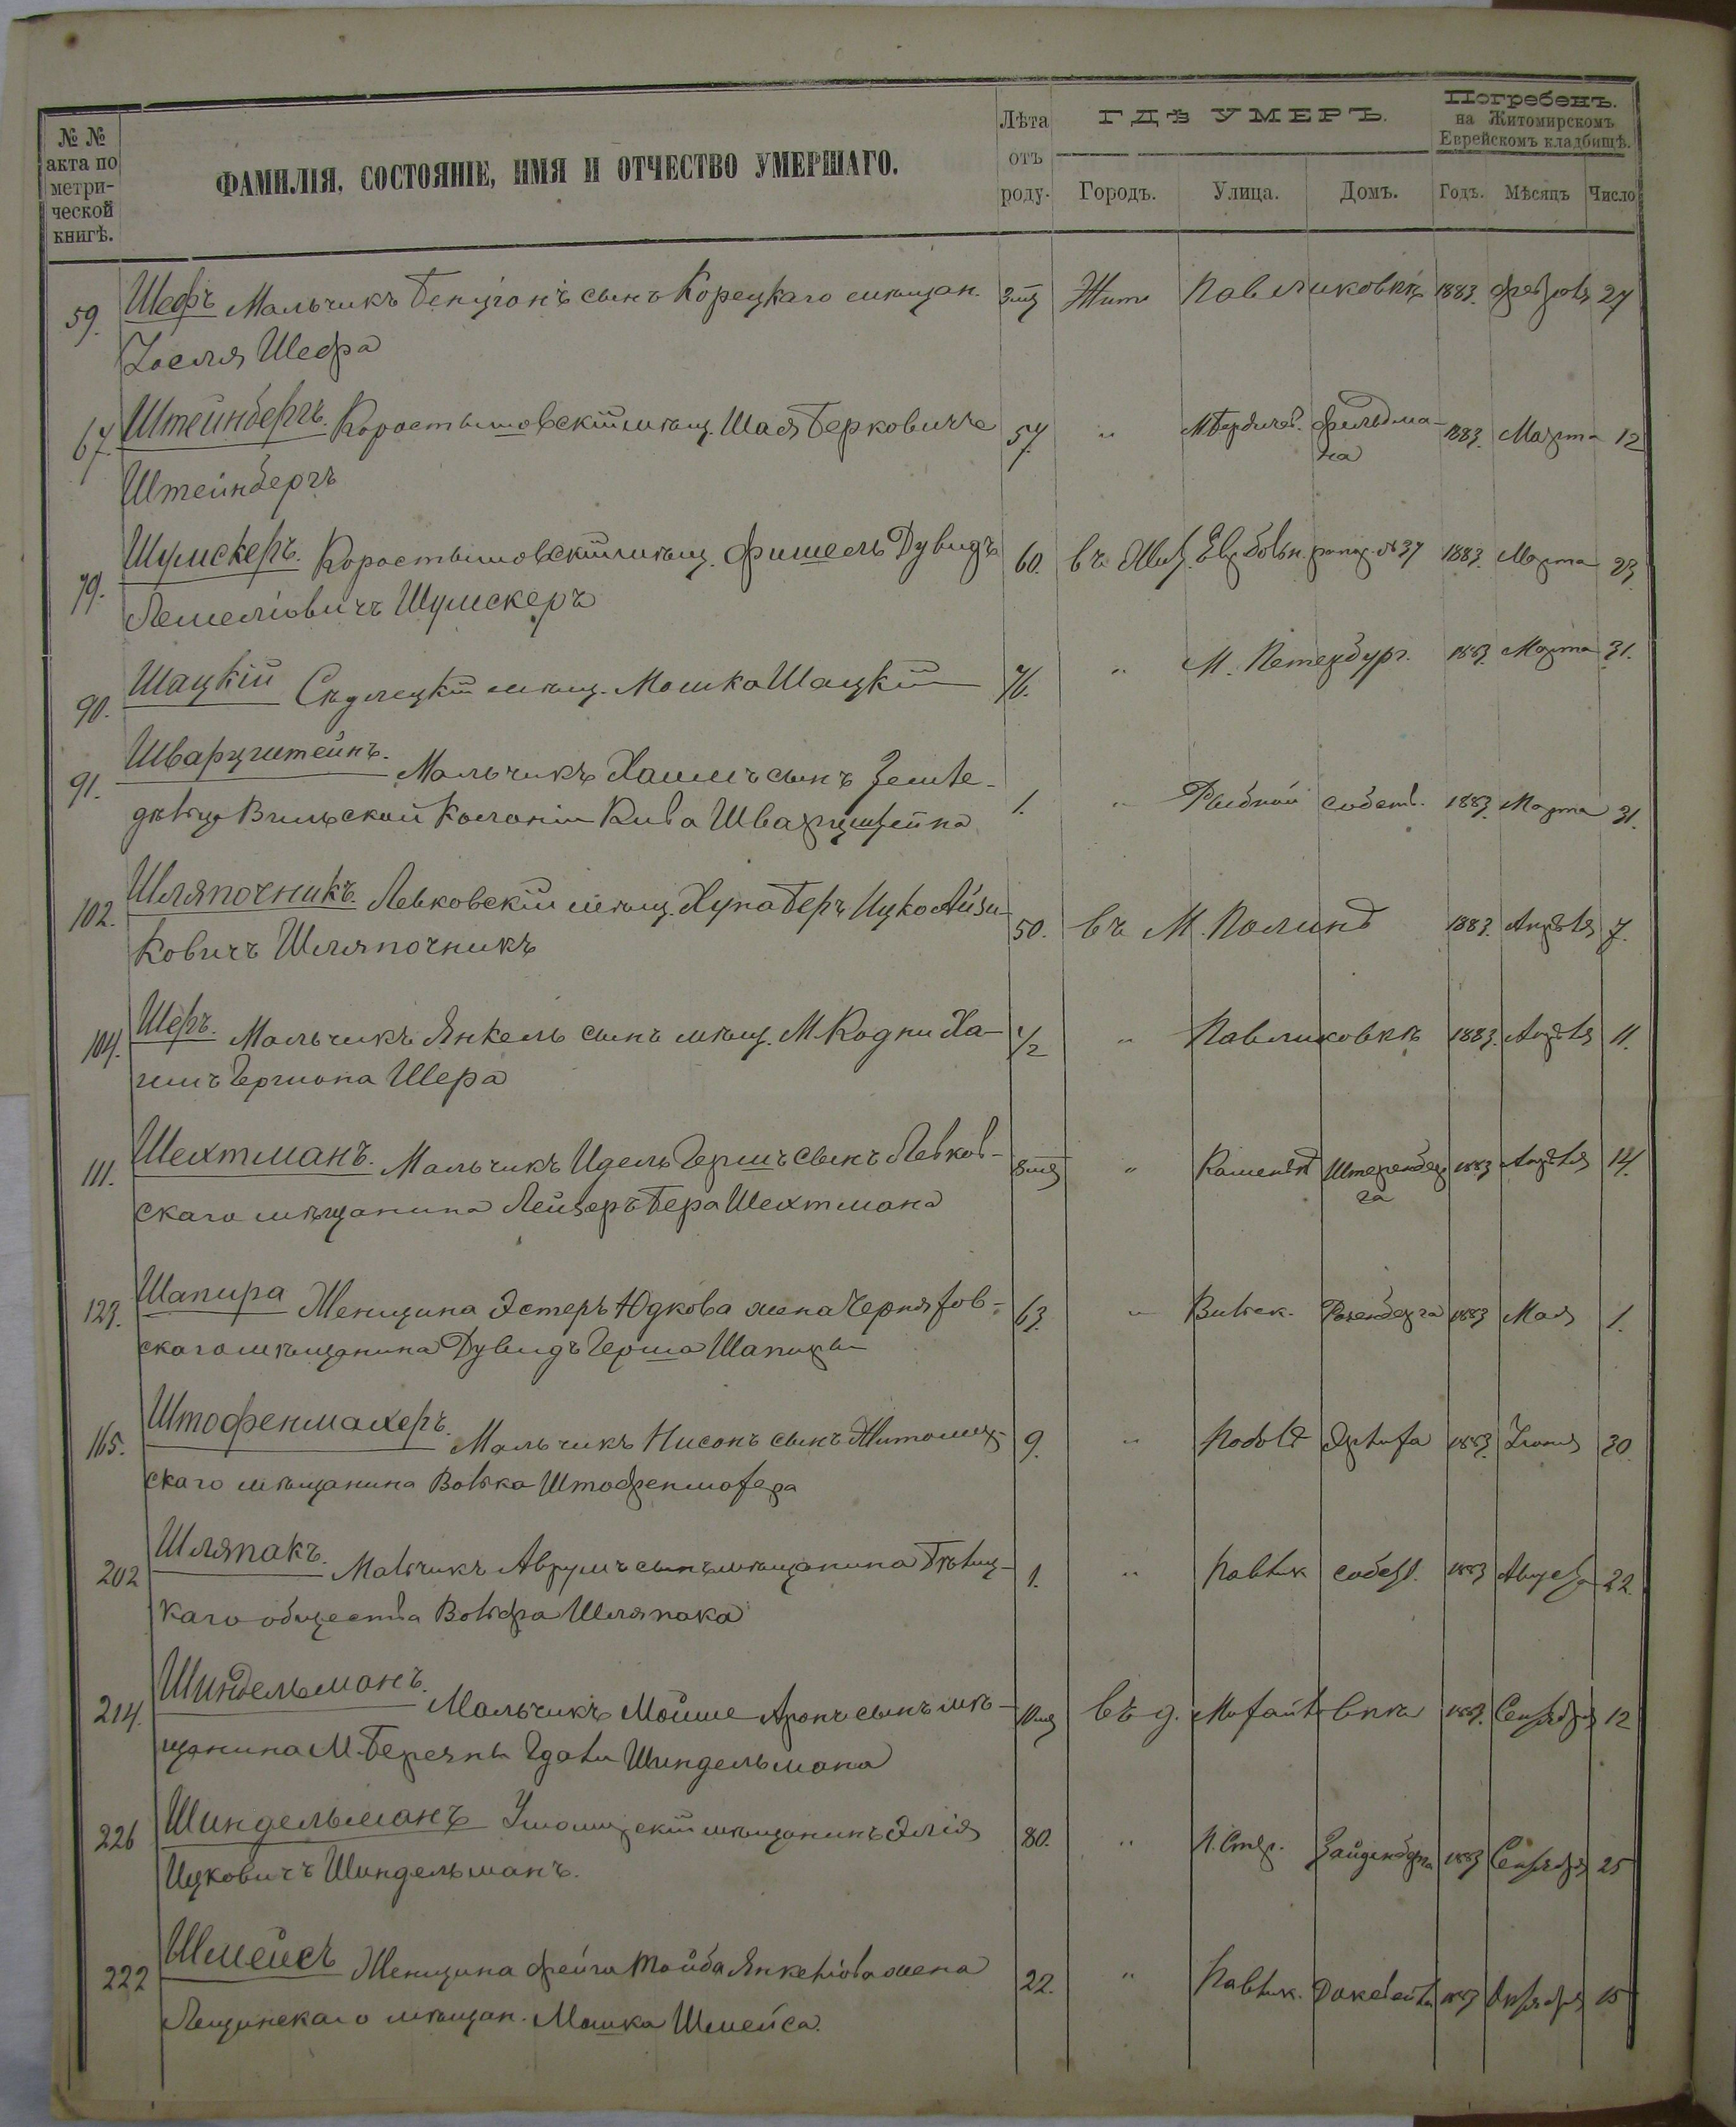 № №
акта по
метри-
ческой
книгѣ.
ФАМИЛІЯ, СОСТОЯНІЕ, ИМЯ И ОТЧЕСТВО УМЕРШАГО.
Лѣта
отъ
роду.
ГДѢ УМЕРЪ.
Городъ. Улица. Домъ.
Погребенъ.
на Житомирскомъ
Еврейскомъ кладбищѣ.
Годъ. Мѣсяцъ Число
59. Шефъ Мальчикъ Бенціонъ сынъ Корецкаго мѣщан. 3 мц Жит Павликовкѣ 1883. Февраля 27
Іоселя Шефа
67. Штейнбергъ. Коростышовскій мѣщ. Шая Берковичъ 57 " М Бердичев. Фельдма- 1883. Марта 12
на
Штейнбергъ
79. Шумскеръ. Коростышовскій мѣщ. Фишель Дувидъ 60. въ Жит. Евр больн. № 37 1883. Марта 23
Шумскеръ
90. Шацкій Сѣдлецкій мѣщ. Мошко Шацкій 76. " М. Петербург. 1883. Марта 31.
91. Шварцштейнъ. Мальчикъ Хаимъ сынъ Земле- 1. " Рыбной собств. 1883. Марта 31.
дѣльца Вильской Колоніи Кива Шварцштейна
102. Шляпочникъ. Левковскій мѣщ. Хуна Беръ Ицко Айзи- 50. въ М. 1883. Апрѣля 7.
ковичъ Шляпочникъ
104. Шеръ. Мальчикъ Янкель сынъ мѣщ. М. Кодни Ха- 1/2 " Павликовкѣ 1883. Апрѣля 11.
имъ Гершона Шера
111. Шехтманъ. Мальчикъ Идель Гершъ сынъ Левков- 8 мц " Штеренбер 1883 Апрѣля 14.
га
скаго мѣщанина Лейзеръ Бера Шехтмана
123. Шапира Женщина Эстеръ Юдкова жена Черняхов- 63. " Вильск. Розенберга 1883 Мая 1.
скаго мѣщанина Дувидъ Герша Шапиры
165. Штофенмахеръ. Мальчикъ Нисонъ сынъ Житомир- 9. " 1883 Іюня 30.
скаго мѣщанина Волька Штофенмахера
202 Шляпакъ. Мальчикъ Аврумъ сынъ мѣщанина 1. " Павлик собств. 1883 Августа 22.
каго общества Вольфа Шляпака
214. Шиндельманъ. Мальчикъ Мойше Аронъ сынъ мѣ- 10 мц въ д. 1883. Сентября 12
щанина М. Шиндельмана
226 Шиндельманъ мѣщанинъ Элія 80. " Зайденберга 1883 Сентября 25
Ицковичъ Шиндельманъ.
222 Шмейсъ Женщина Фейга Тойба Янкеліова жена 22. " Павлик. 1883 Октября 15
Лещинскаго мѣщан. Мошка Шмейса.